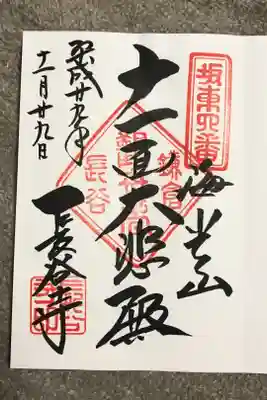 坂東四番
海光山
鎌倉
十一面大悲殿
長谷
長谷寺
平成廿九年
十一月廿九日